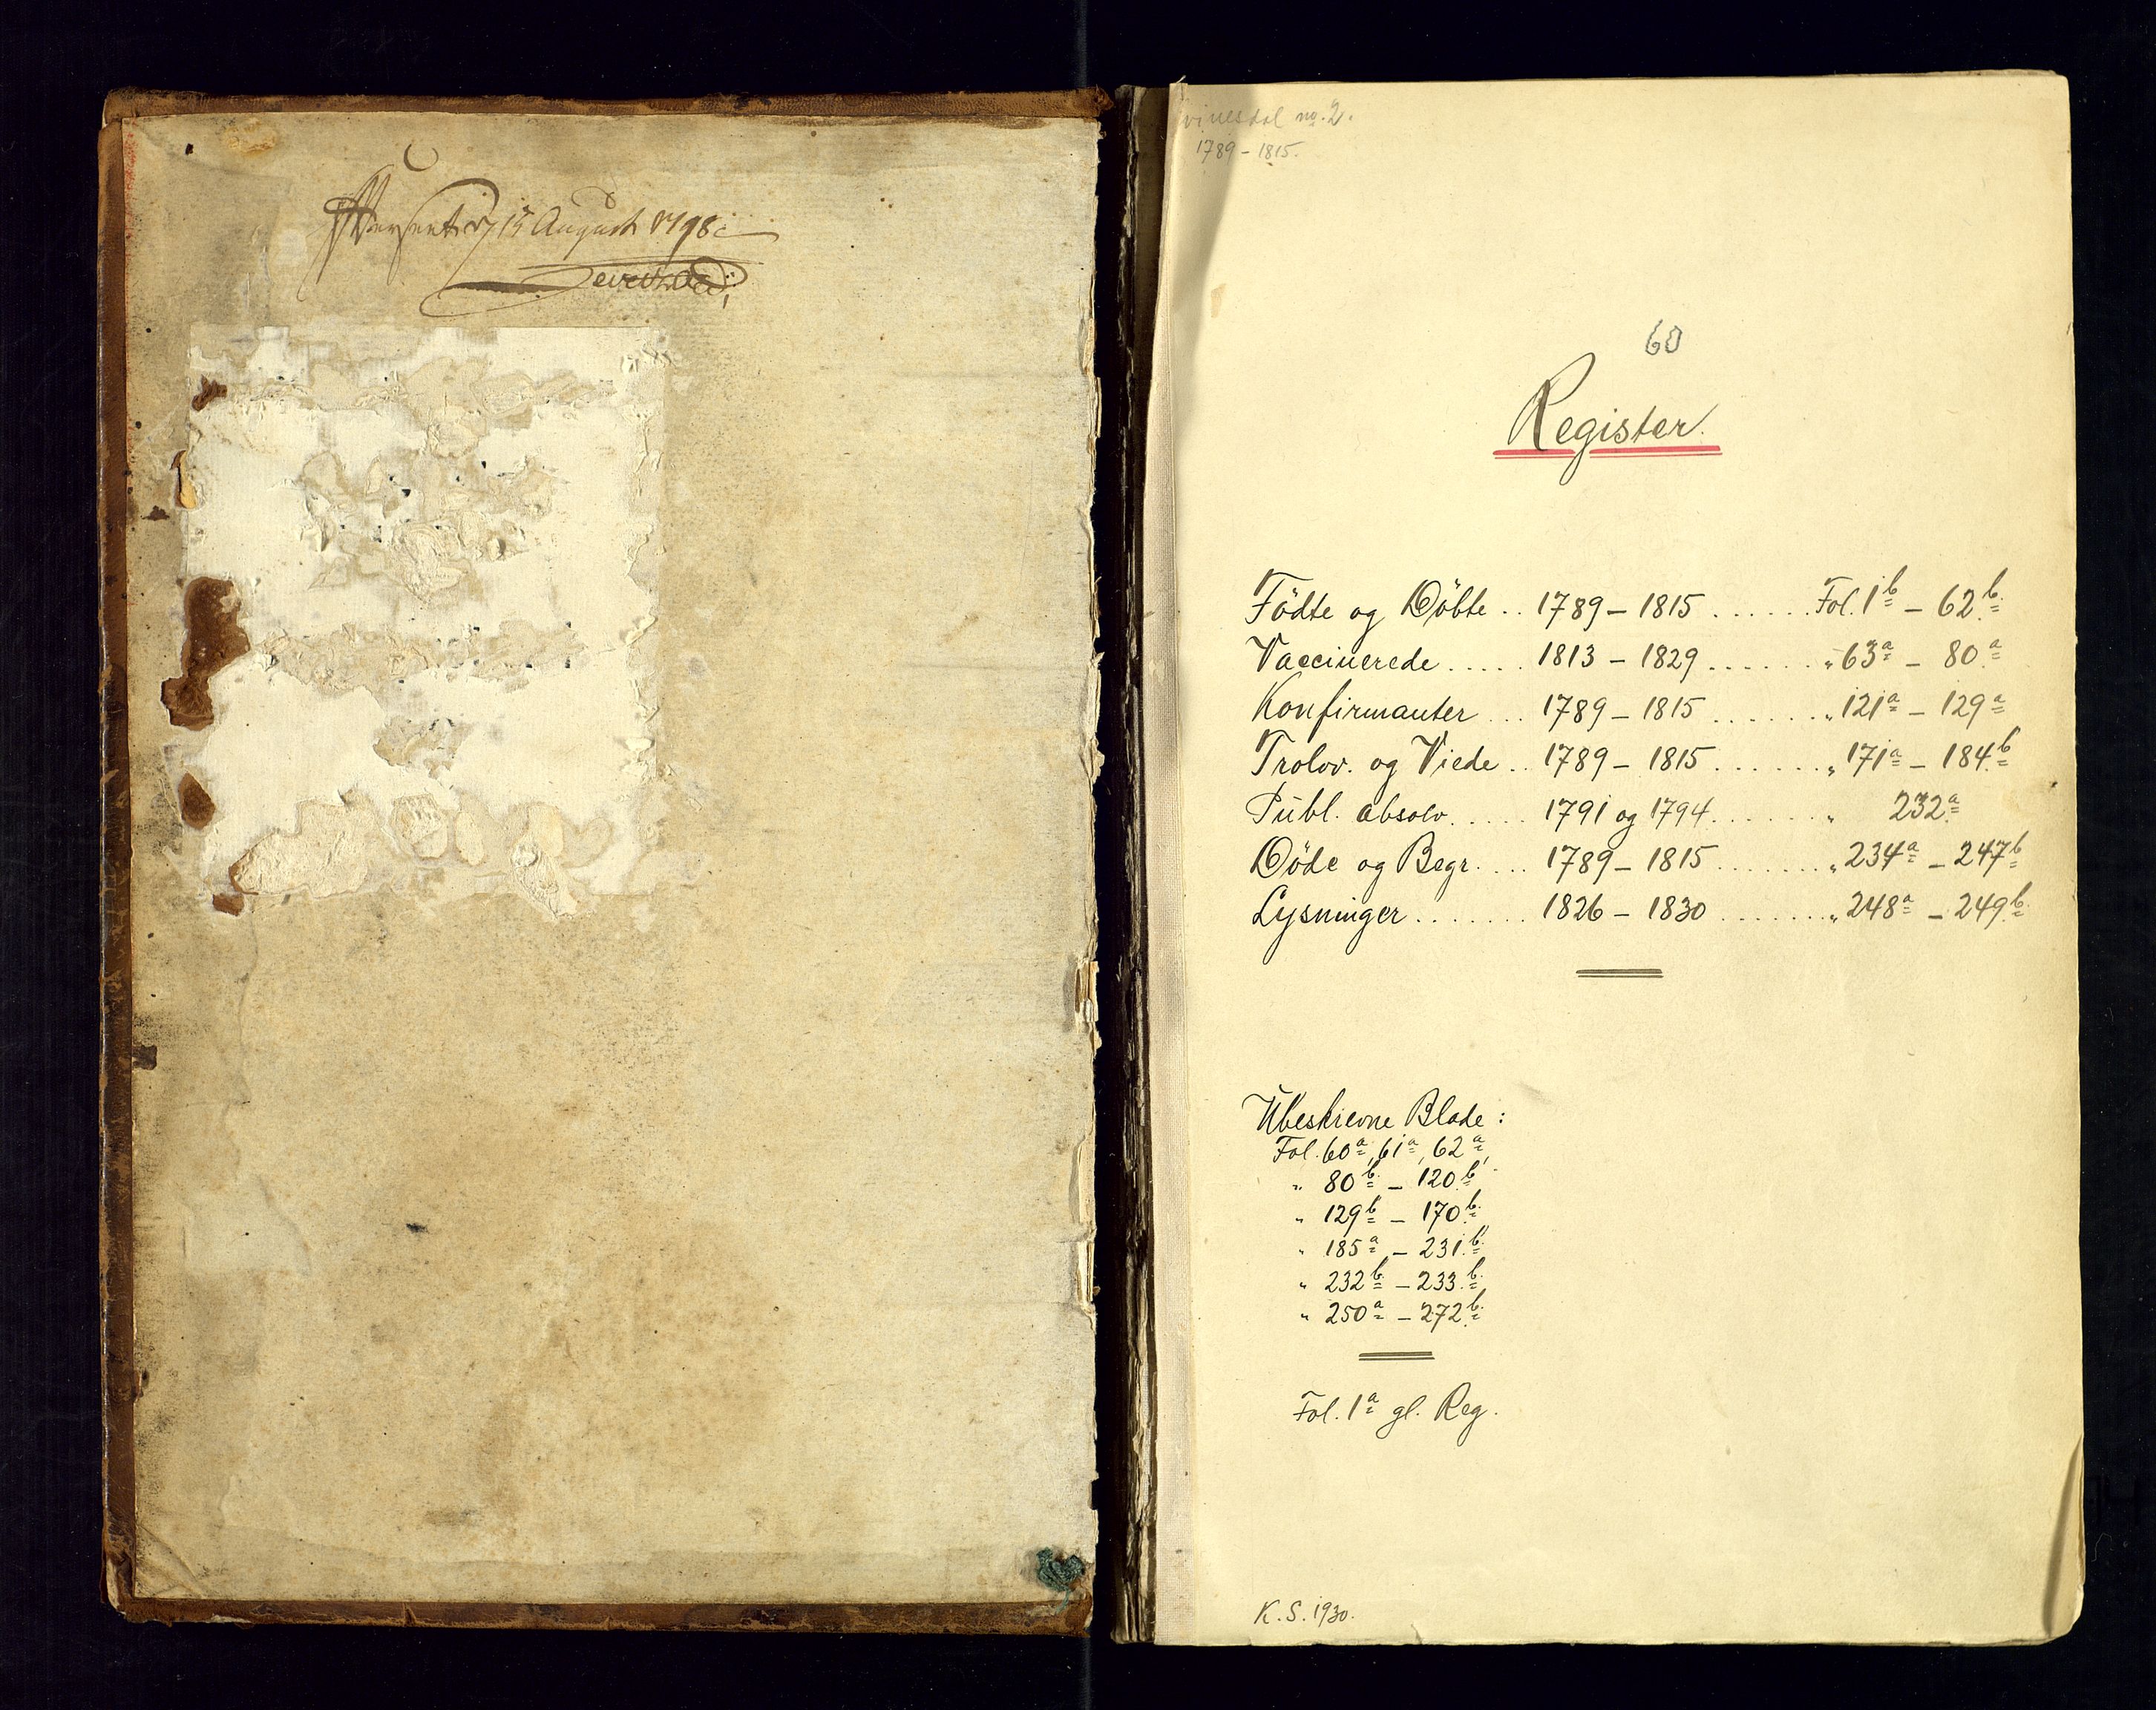 15 August 1798
vinesdal no. 2.
1789 - 1815.
60
Register.
Födte og Döbte .. 1789 - 1815 ...... Fol. 1b - 62b.
Vaccinerede ..... 1813 - 1829 ....... " 63a - 80a
Konfirmanter ... 1789 - 1815 ....... " 121a - 129a
Trolov. og Viede .. 1789 - 1815 ....... " 171a - 184b
Publ. absolv. ..... 1791 og 1794 ....... " 232a
Döde og Begr. ... 1789 - 1815 ....... " 234a - 247b
Lysninger ....... 1826 - 1830 ....... " 248a - 249b.
Ubeskrevne Blade :
Fol. 60a, 61a, 62a,
" 80b - 120b
" 129b - 170b
" 185a - 231b
" 232b - 233b
" 250a - 272b
Fol. 1a gl. Reg.
K. S. 1930.